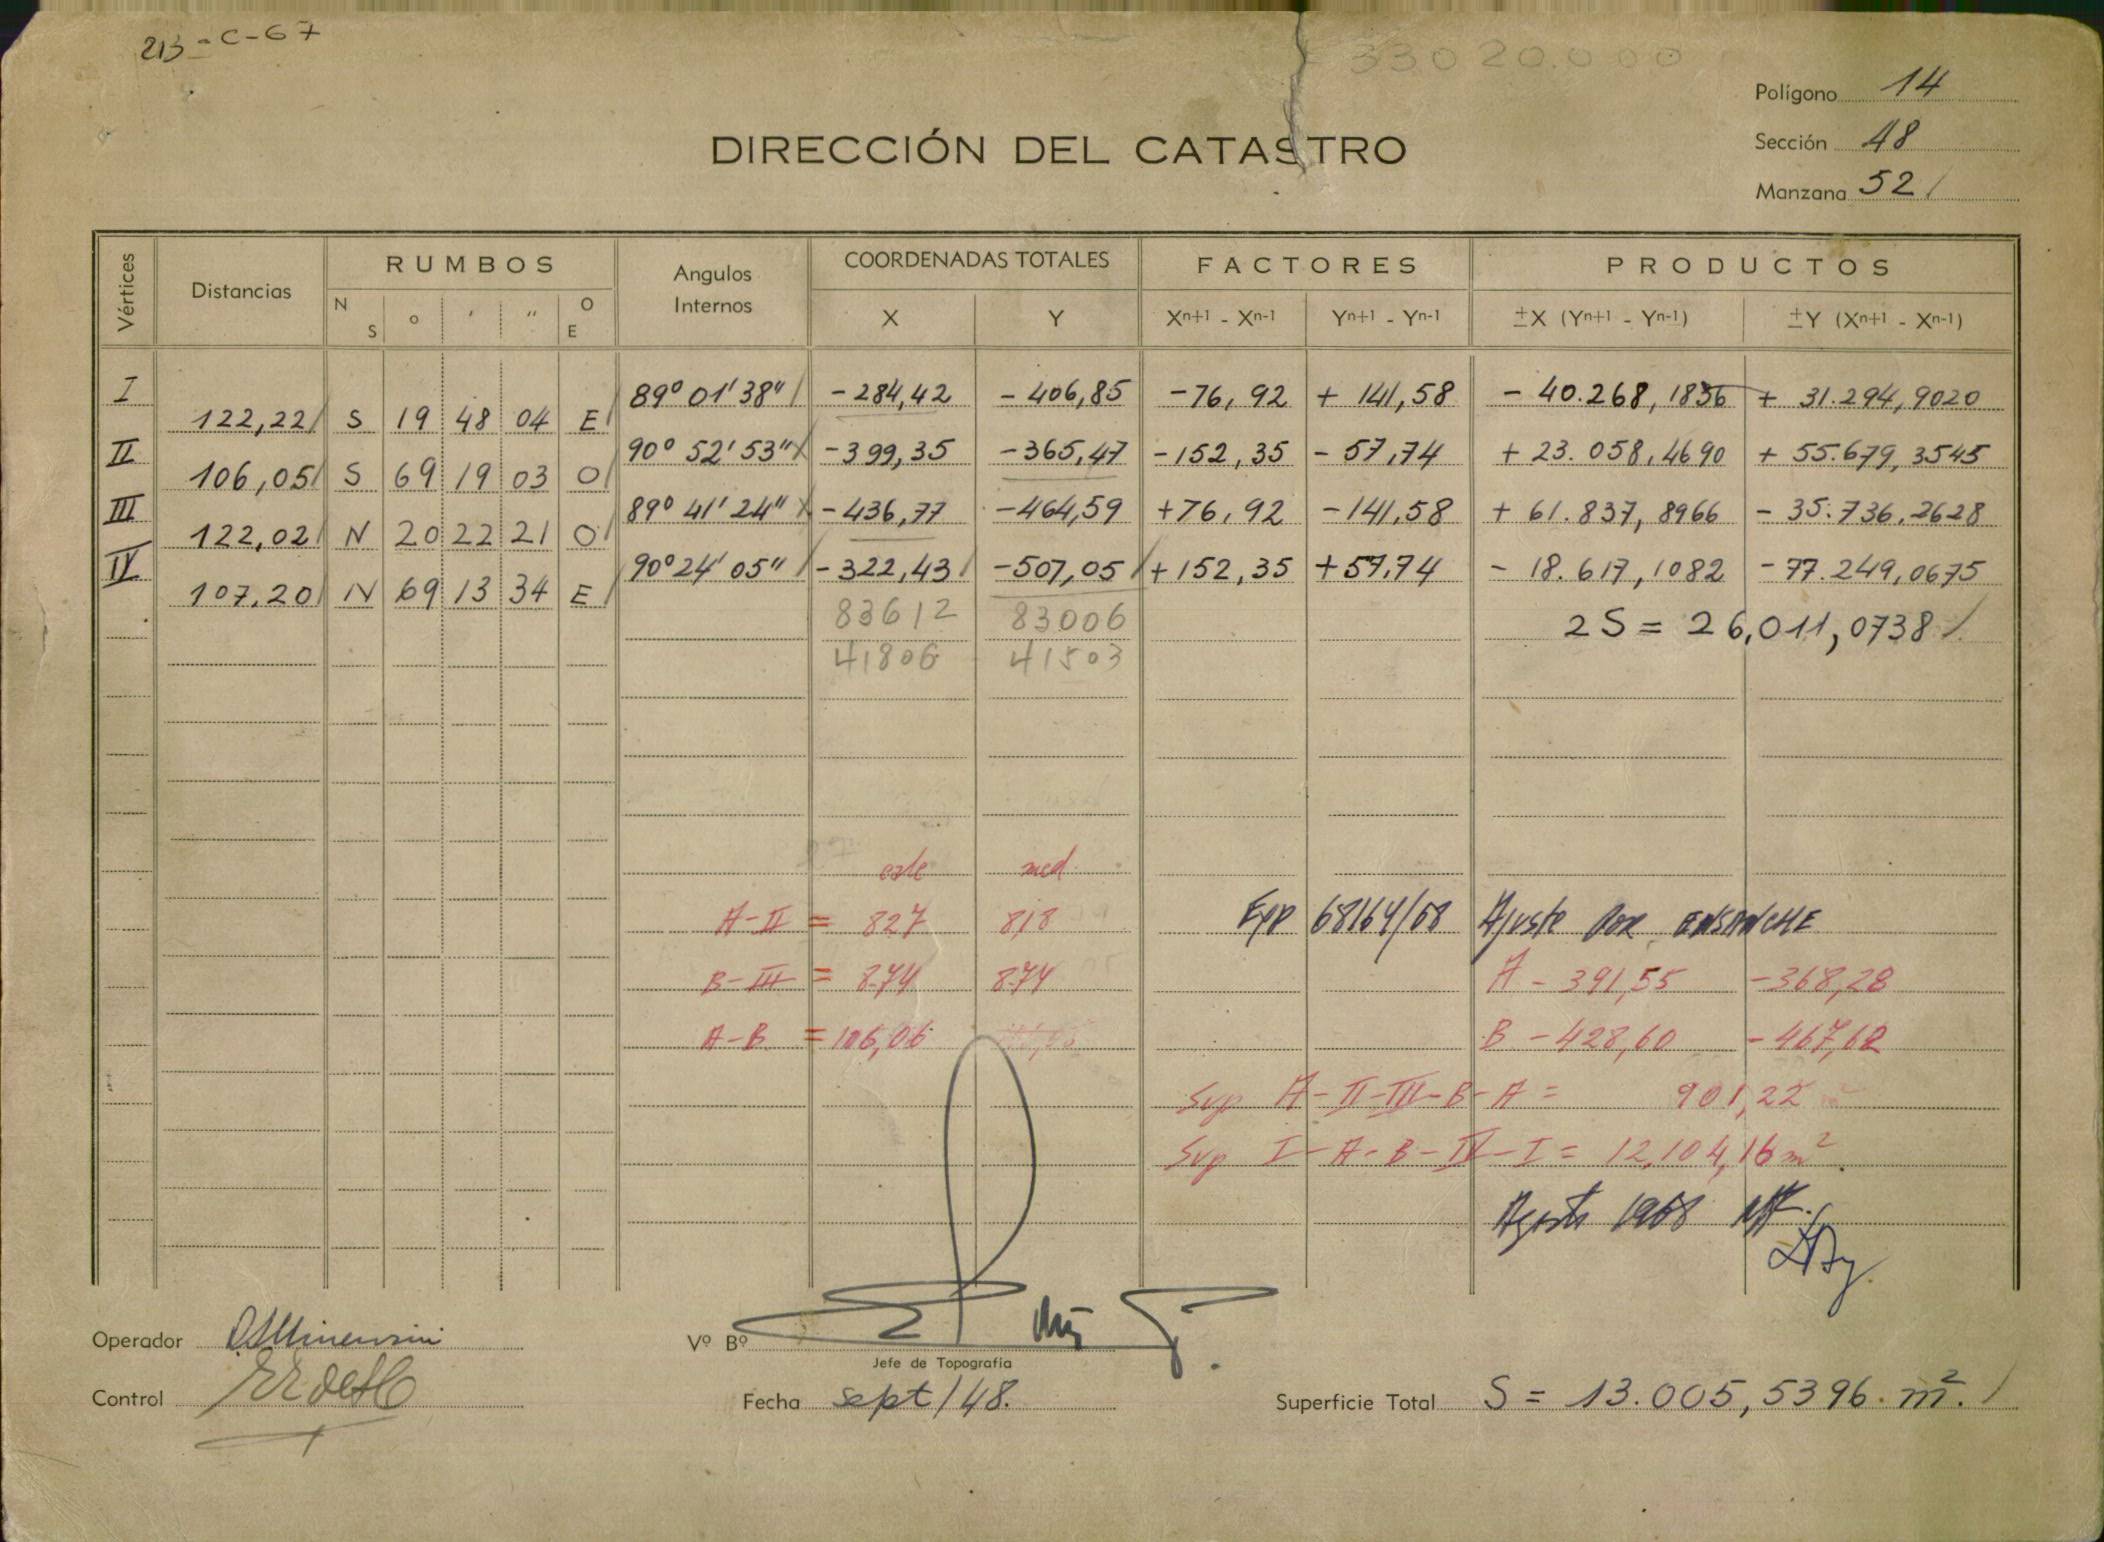 213-C-67
33020.000
Polígono 14
DIRECCIÓN DEL CATASTRO
Sección 48
Manzana 52
Vértices Distancias RUMBOS Angulos Internos COORDENADAS TOTALES FACTORES PRODUCTOS
N S o ' " O E X Y Xn+1 - Xn-1 Yn+1 - Yn-1 ±X (Yn+1 - Yn-1) ±Y (Xn+1 - Xn-1)
I 89° 01' 38" -284,42 -406,85 -76,92 + 141,58 - 40.268,1836 + 31.294,9020
122,22 S 19 48 04 E
II 90° 52' 53" -399,35 -365,47 -152,35 - 57,74 + 23.058,4690 + 55.679,3545
106,05 S 69 19 03 O
III 89° 41' 24" -436,77 -464,59 +76,92 -141,58 + 61.837,8966 - 35.736,2628
122,02 N 20 22 21 O
IV 90° 24' 05" -322,43 -507,05 +152,35 +57,74 - 18.617,1082 -77.249,0675
107,20 N 69 13 34 E
83612 83006 2S = 26,011,0738
41806 41503
med
A-II = 827 818 Exp 68164/68 Ajuste por ENSANCHE
B-III = 8.74 874 A - 391,55 -368,28
A-B = 106,06 B -428,60 -467,62
Sup A-II-III-B-A = 901,22 m²
Sup I-A-B-IV-I = 12,104,16 m²
Agosto 1968
Operador
Vº Bº
Jefe de Topografía
Control
Fecha sept/48.
Superficie Total S = 13.005,5396 m².